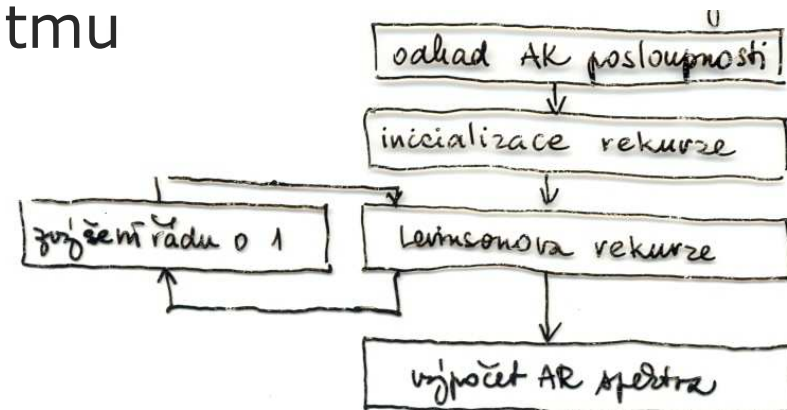 tmu
odhad AK posloupnosti
inicializace rekurze
zvýšení řádu o 1
Levinsonova rekurze
výpočet AR spektra